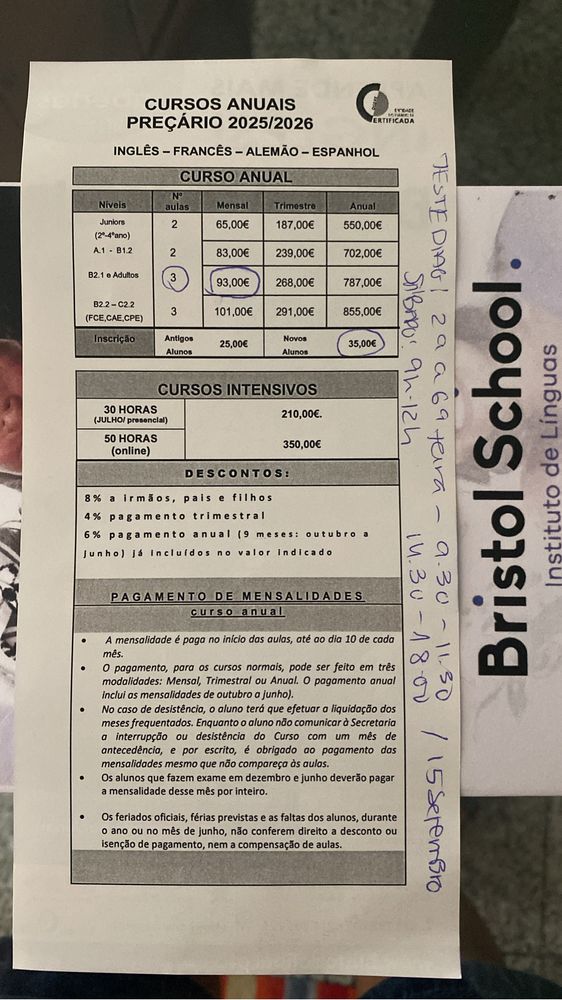 CURSOS ANUAIS
PREÇÁRIO 2025/2026
ERTIFICADA
INGLÊS – FRANCÊS – ALEMÃO – ESPANHOL
CURSO ANUAL
Níveis Nº aulas Mensal Trimestre Anual
Juniors (2º-4ºano) 2 65,00€ 187,00€ 550,00€
A.1 - B1.2 2 83,00€ 239,00€ 702,00€
B2.1 e Adultos 3 93,00€ 268,00€ 787,00€
B2.2 – C2.2 (FCE,CAE,CPE) 3 101,00€ 291,00€ 855,00€
Inscrição Antigos Alunos 25,00€ Novos Alunos 35,00€
CURSOS INTENSIVOS
30 HORAS (JULHO/ presencial) 210,00€.
50 HORAS (online) 350,00€
DESCONTOS:
8% a irmãos, pais e filhos
4% pagamento trimestral
6% pagamento anual (9 meses: outubro a
junho) já incluídos no valor indicado
PAGAMENTO DE MENSALIDADES
curso anual
• A mensalidade é paga no início das aulas, até ao dia 10 de cada
mês.
• O pagamento, para os cursos normais, pode ser feito em três
modalidades: Mensal, Trimestral ou Anual. O pagamento anual
inclui as mensalidades de outubro a junho).
• No caso de desistência, o aluno terá que efetuar a liquidação dos
meses frequentados. Enquanto o aluno não comunicar à Secretaria
a interrupção ou desistência do Curso com um mês de
antecedência, e por escrito, é obrigado ao pagamento das
mensalidades mesmo que não compareça às aulas.
• Os alunos que fazem exame em dezembro e junho deverão pagar
a mensalidade desse mês por inteiro.
• Os feriados oficiais, férias previstas e as faltas dos alunos, durante
o ano ou no mês de junho, não conferem direito a desconto ou
isenção de pagamento, nem a compensação de aulas.
TESTE DIAG 2ª a 6ª feira - 9.30 - 11.30 / 15 Setembro
9h-12h 14.30 - 18.00
Bristol School.
Instituto de Línguas